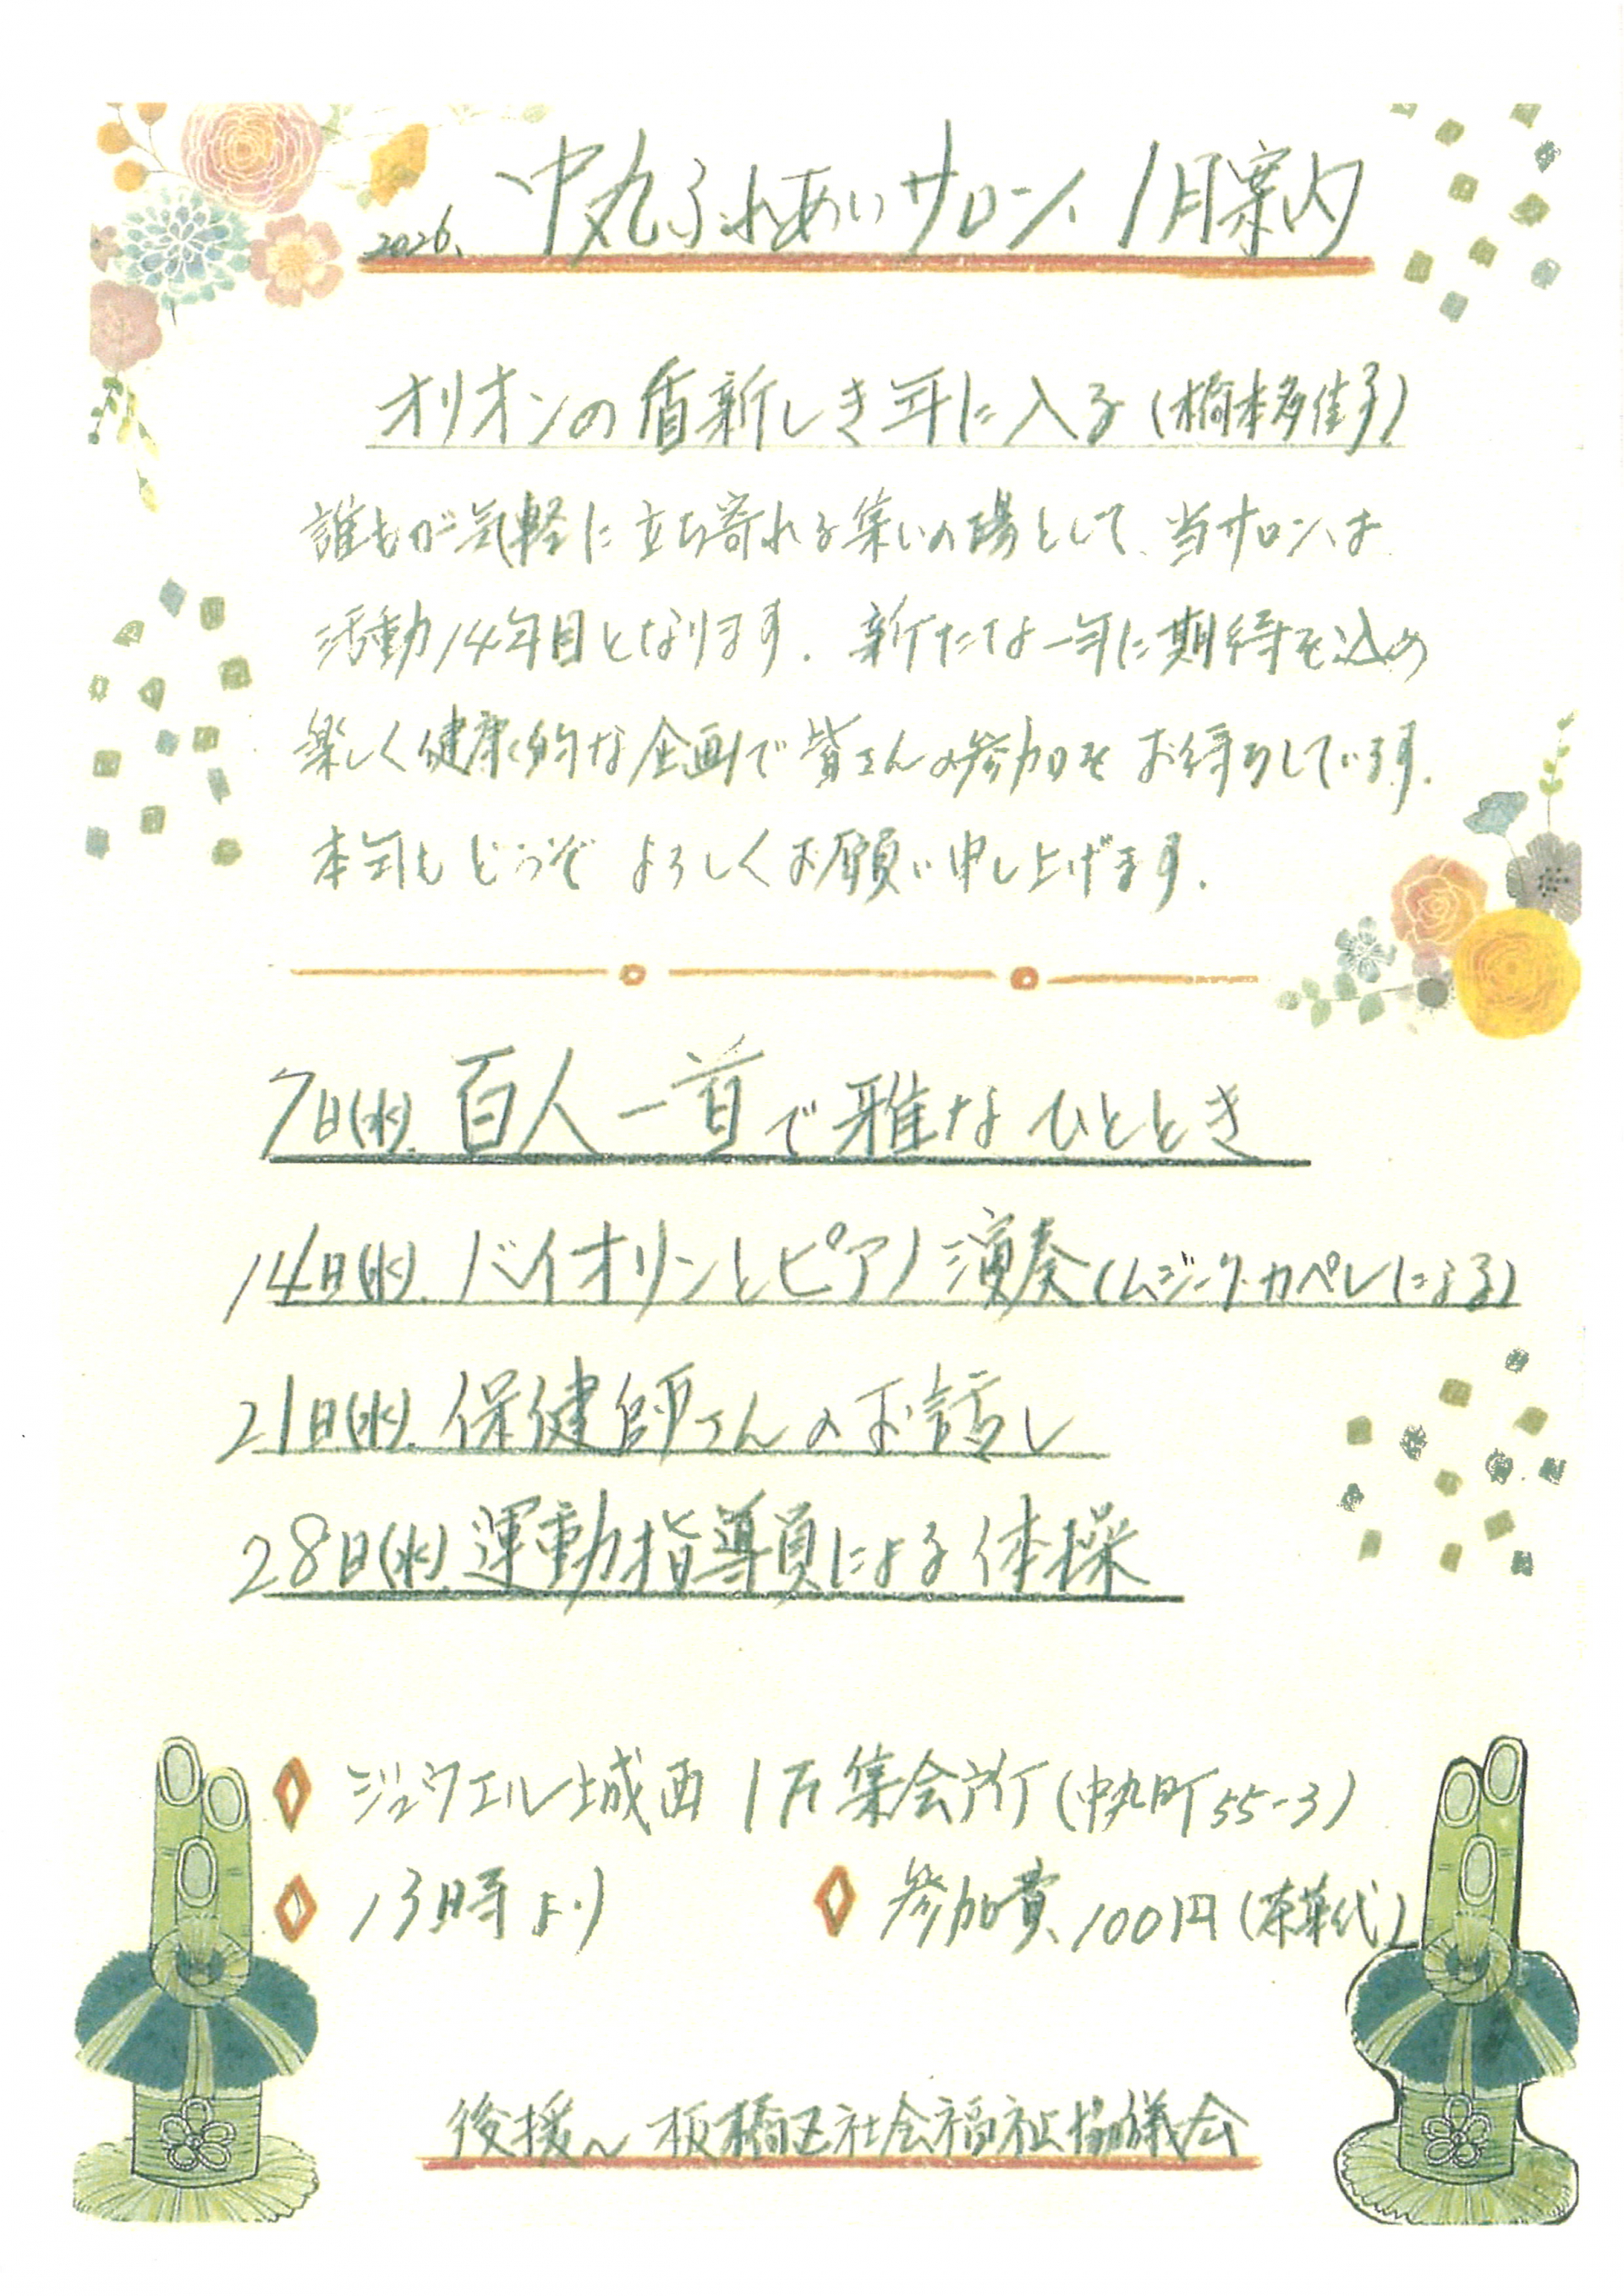 2026. 中丸ふれあいサロン 1月案内
オリオンの盾新しき年に入る(橋本多佳子)
誰もが気軽に立ち寄れる集いの場として、当サロンは
活動14年目となります。新たな一年に期待を込め
楽しく健康的な企画で皆さんの参加をお待ちしています。
本年もどうぞよろしくお願い申し上げます。
7日(水). 百人一首で雅なひととき
14日(水). バイオリンとピアノ演奏(ムジーク・カペレによる)
21日(水). 保健師さんのお話し
28日(水). 運動指導員による体操
ジュウエル城西 1F集会所(中丸町55-3)
13時より
参加費、100円(茶菓代)
後援〜板橋区社会福祉協議会